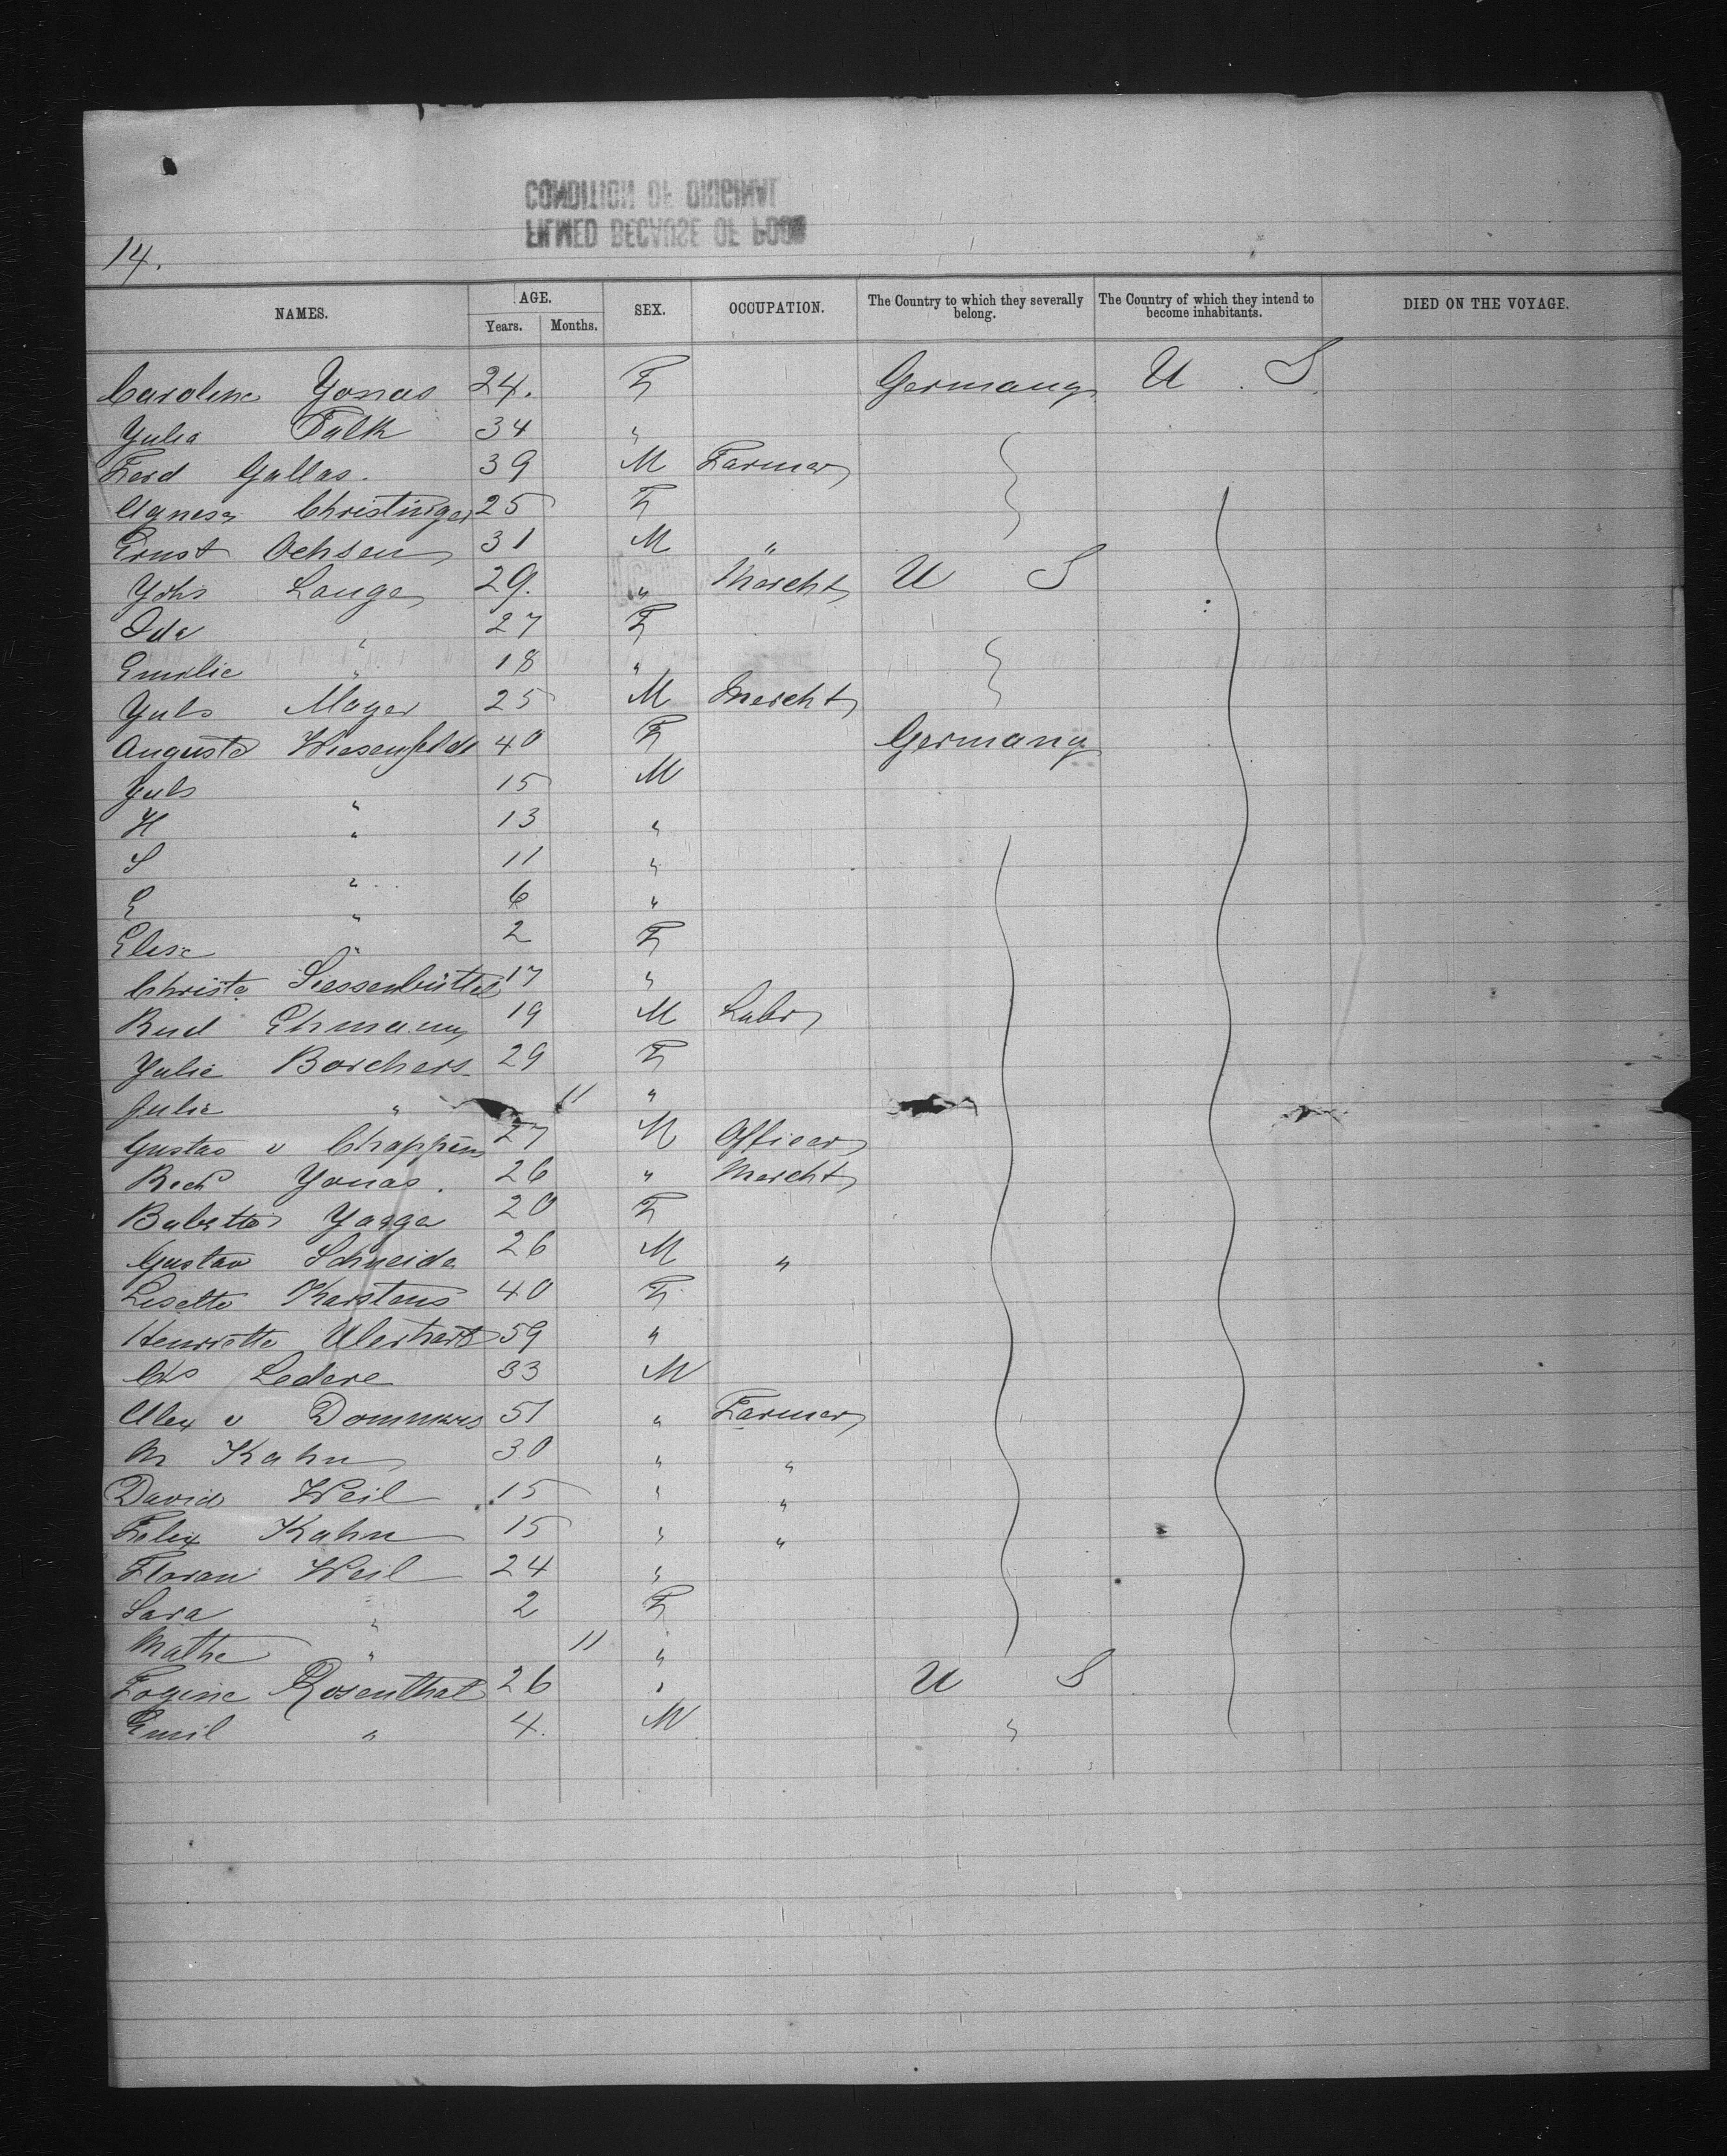 CONDITION OF ORIGINAL
FILMED BECAUSE OF POOR
14.
NAMES. AGE. Years. Months. SEX. OCCUPATION. The Country to which they severally belong. The Country of which they intend to become inhabitants. DIED ON THE VOYAGE.
Caroline Yonas 24. F Germany U. S.
Yulia Falk 34 "
Ferd Gallas. 39 M Farmer
Agnes Christinger 25 F
Ernst Ochsen 31 M "
Yohs Lange 29. " Mercht U S
Ida " 27 F
Emilie " 18 "
Yuls Mayer 25 M Mercht
Auguste Wiesenfelde 40 F Germany
Yuls " 15 M
H " 13 "
S " 11 "
E " 6 "
Elise " 2 F
Christe 17 "
Rud Ehmann 19 M Labr
Yulie Borchers 29 F
Julia " 11 "
Gustav v 27 M Officer
Rich Yonas. 26 " Mercht
Babette Yagga 20 F
Gustav Schneide 26 M "
Lisette Karstens 40 F
Henriette 59 "
Chs Ledere 33 M
Alex v 51 " Farmer
M Kahn 30 " "
David Weil 15 " "
Felix Kahn 15 " "
Floran Weil 24 "
Sara " 2 F
Mathe " 11 "
Rosenthal 26 " U S
Emil " 4. M "